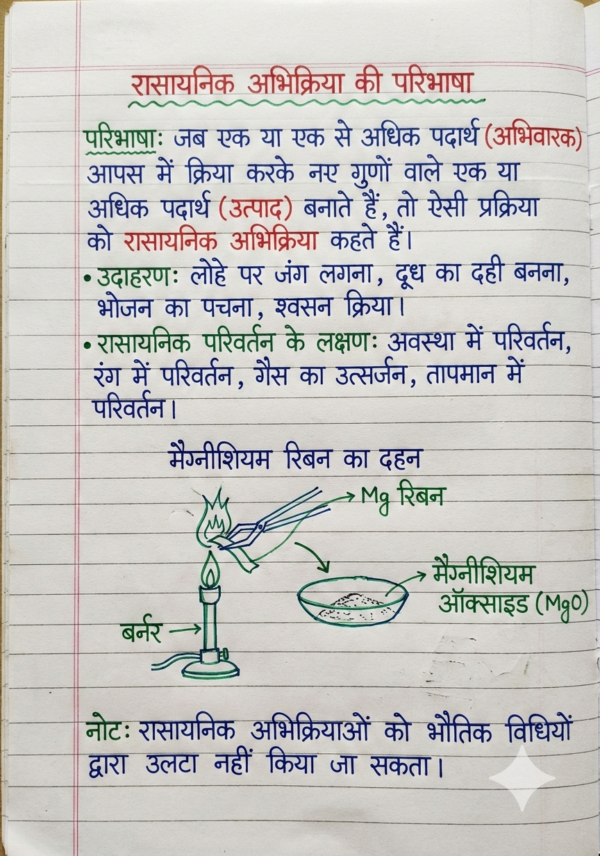 रासायनिक अभिक्रिया की परिभाषा
परिभाषाः जब एक या एक से अधिक पदार्थ (अभिवारक)
आपस में क्रिया करके नए गुणों वाले एक या
अधिक पदार्थ (उत्पाद) बनाते हैं, तो ऐसी प्रक्रिया
को रासायनिक अभिक्रिया कहते हैं।
• उदाहरणः लोहे पर जंग लगना, दूध का दही बनना,
भोजन का पचना, श्वसन क्रिया।
• रासायनिक परिवर्तन के लक्षणः अवस्था में परिवर्तन,
रंग में परिवर्तन, गैस का उत्सर्जन, तापमान में
परिवर्तन।
मैग्नीशियम रिबन का दहन
Mg रिबन
मैग्नीशियम
ऑक्साइड (MgO)
बर्नर
नोटः रासायनिक अभिक्रियाओं को भौतिक विधियों
द्वारा उलटा नहीं किया जा सकता।